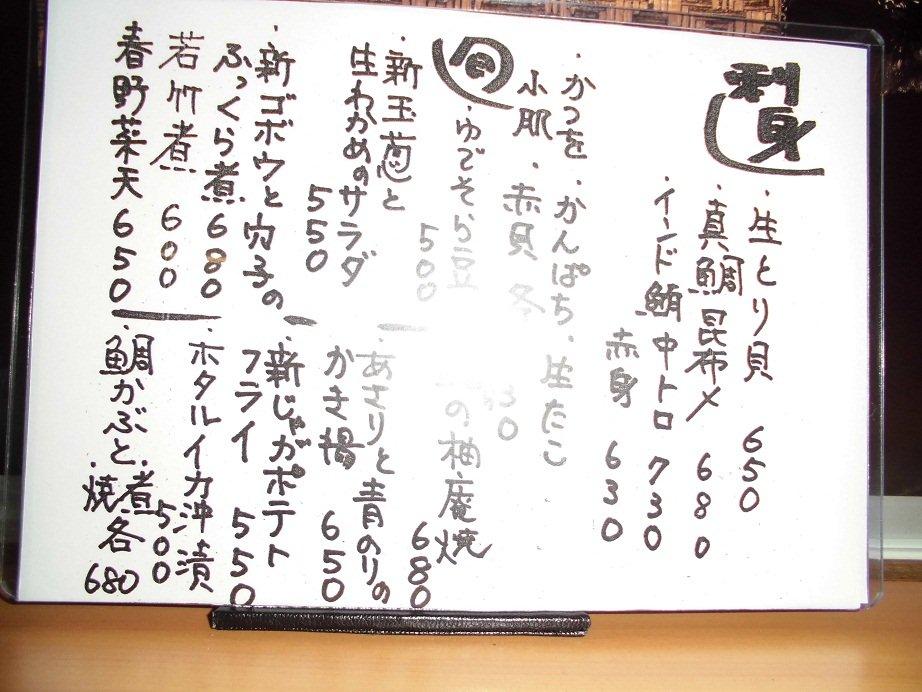 刺身
・生とり貝 650
・真鯛昆布〆 680
・インド鮪中トロ 730
赤身 630
・かつを・かんぱち・生たこ
小肌・赤貝 各
30
旬
・ゆでそら豆
500
・新玉葱と
生わかめのサラダ
550
・新ゴボウと穴子の
ふっくら煮 680
若竹煮 600
春野菜天 650
の柚庵焼
680
・あさりと青のりの
かき揚 650
・新じゃがポテト
フライ 550
・ホタルイカ沖漬
500
・鯛かぶと・煮
・焼
各
680